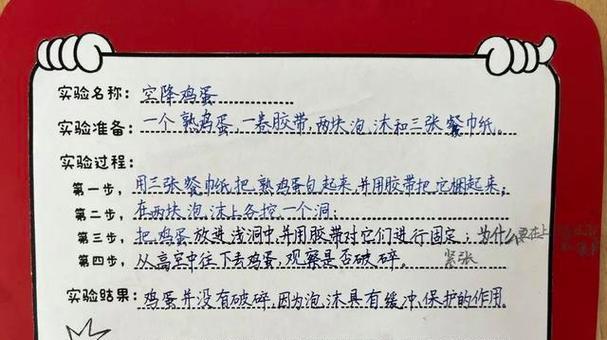 实验名称：空降鸡蛋
实验准备：一个熟鸡蛋，一卷胶带，两块泡沫和三张餐巾纸。
实验过程：
第一步，用三张餐巾纸把熟鸡蛋包起来，并用胶带把它捆起来；
第二步，在两块泡沫上各挖一个洞；
第三步，把鸡蛋放进浅洞中，并用胶带对它们进行固定；为什么要在上
第四步，从高空中往下丢鸡蛋，观察是否破碎。 紧张
实验结果：鸡蛋并没有破碎，因为泡沫具有缓冲、保护的作用。